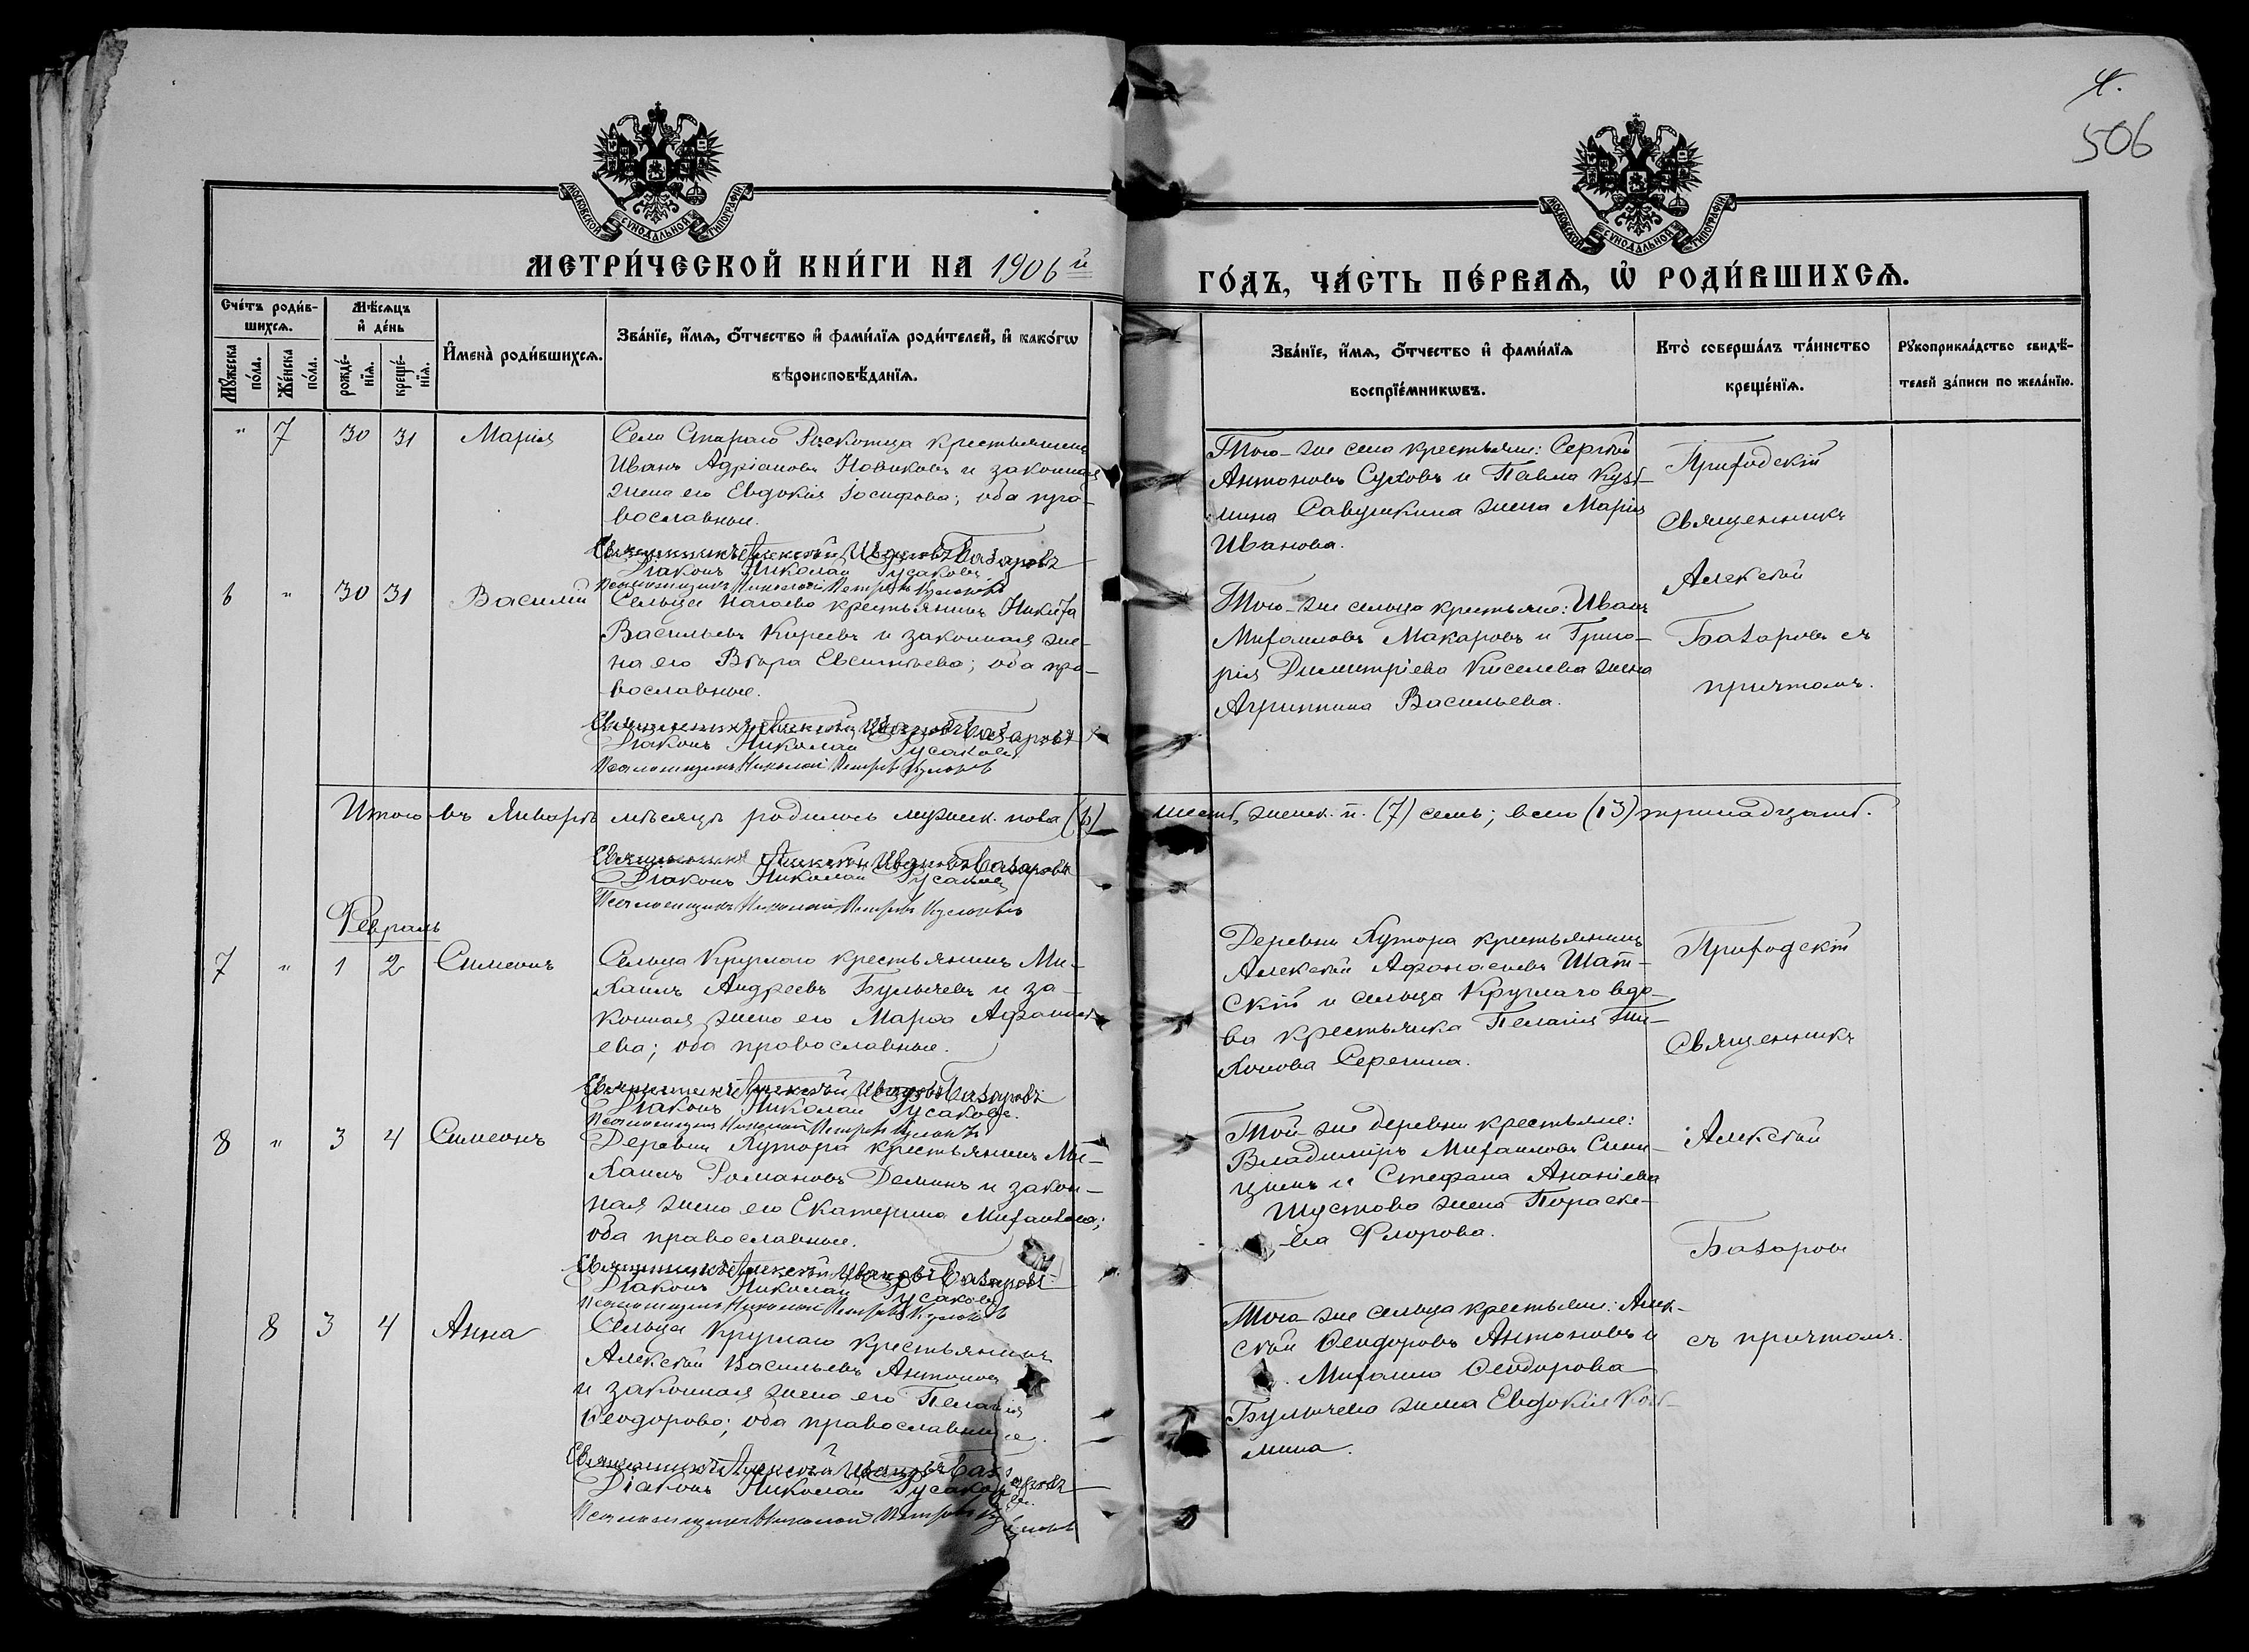 4.
506
МОСКОВСКОЙ СѴНОДАЛЬНОЙ ТИПОГРАФІИ
МОСКОВСКОЙ СѴНОДАЛЬНОЙ ТИПОГРАФІИ
МЕТРИ́ЧЕСКОЙ КНИ́ГИ НА 1906 й
ГО́ДЪ, ЧА́СТЬ ПЕ́РВАѦ, Ѡ҆ РОДИ́ВШИХСѦ.
Сче́тъ роди́в-
шихсѧ.
Мѣ́сѧцъ
и҆ де́нь
Мꙋ́жеска по́ла.
Же́нска по́ла.
рожде́-нїѧ.
креще́-нїѧ.
И҆мена̀ роди́вшихсѧ.
Зва́нїе, и҆́мѧ, ѻ҆́тчество и҆ фами́лїѧ роди́телей, и҆ како́гѡ
вѣроисповѣ́данїѧ.
Зва́нїе, и҆́мѧ, ѻ҆́тчество и҆ фами́лїѧ
воспрїе́мникѡвъ.
Кто̀ соверша́лъ та́инство
креще́нїѧ.
Рꙋкоприкла́дство свидѣ́-
телей за́писи по жела́нїю.
" 7 30 31 Марія
Села Стараго крестьянинъ
Иванъ Адріановъ Новиковъ и законная
жена его Евдокія Іосифова; оба пра-
вославные.
Священникъ Алексѣй Ивановъ Базаровъ
Діаконъ Николай Гусаковъ
Псаломщикъ Николай Петровъ
Того-же села крестьяне: Сергѣй
Антоновъ Суховъ и Павла Кузь-
мина Савушкина жена Марія
Иванова.
Приходскій
Священникъ
Алексѣй
Базаровъ съ
причтомъ.
6 " 30 31 Василій
Сельца Нагаево крестьянинъ Никита
Васильевъ Киреевъ и законная же-
на его Вѣра Евсигнѣева; оба пра-
вославные.
Священникъ Алексѣй Ивановъ Базаровъ
Діаконъ Николай Гусаковъ
Псаломщикъ Николай Петровъ
Того-же сельца крестьяне: Иванъ
Михаиловъ Макаровъ и Григо-
рія Димитріева Киселева жена
Агриппина Васильева.
Итого въ Январѣ мѣсяцѣ родилось мужеск. пола (6)
шесть, женск. п. (7) семь; всего (13) тринадцать.
Священникъ Алексѣй Ивановъ Базаровъ
Діаконъ Николай Гусаковъ
Псаломщикъ Николай Петровъ
Февраль
7 " 1 2 Симеонъ
Сельца Круглаго крестьянинъ Ми-
хаилъ Андреевъ Булычевъ и за-
конная жена его Марѳа Афанась-
ева; оба православные.
Священникъ Алексѣй Ивановъ Базаровъ
Діаконъ Николай Гусаковъ.
Псаломщикъ Николай Петровъ
Деревни Хутора крестьянинъ
Алексѣй Афанасьевъ Шат-
скій и сельца Круглаго вдо-
ва крестьянка Пелагія Ти-
хонова Серегина.
Приходскій
Священникъ
Алексѣй
Базаровъ
съ причтомъ.
8 " 3 4 Симеонъ
Деревни Хутора крестьянинъ Ми-
хаилъ Романовъ Деминъ и закон-
ная жена его Екатерина Михайлова;
оба православные.
Священникъ Алексѣй Ивановъ Базаровъ
Діаконъ Николай Гусаковъ
Псаломщикъ Николай Петровъ
Той-же деревни крестьяне:
Владиміръ Михаиловъ Сини-
цынъ и Стефана Ананіева
Шустова жена Параске-
ва Флорова.
8 3 4 Анна
Сельца Круглаго крестьянинъ
Алексѣй Васильевъ Антоновъ
и законная жена его Пелагія
Ѳеодорова; оба православные.
Священникъ Алексѣй Ивановъ Базаровъ
Діаконъ Николай Гусаковъ.
Псаломщикъ Николай Петровъ
Того-же сельца крестьяне: Алек-
сѣй Ѳеодоровъ Антоновъ и
Михаила Ѳеодорова
Булычева жена Евдокія Козь-
мина.